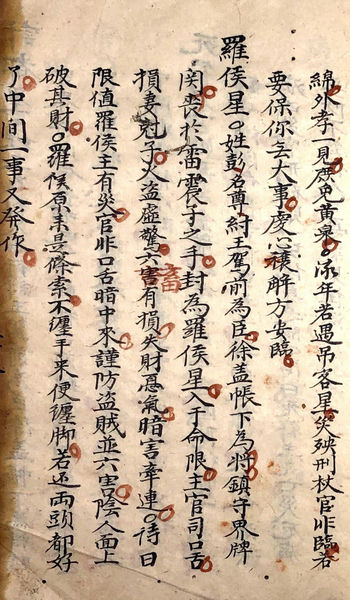 綿外孝一見歷史黃泉。流年若遇吊客星災殃刑杖官非臨若
要保你無大事虔心禳解方安臨
羅侯星。姓彭名尊紂王駕前為臣徐盖帳下為將鎮守界牌
関喪扵雷震子之手封為羅侯星入于命限主官司口舌
損妻尅子火盗虛驚六害有損失財惡氣暗害牽連。詩曰
限值羅侯主有災官非口舌暗中來謹防盗賊並六畜陰人面上
破其財。羅侯原来是條索不纏手来便纏脚若还兩頭都好
了中间一事又發作